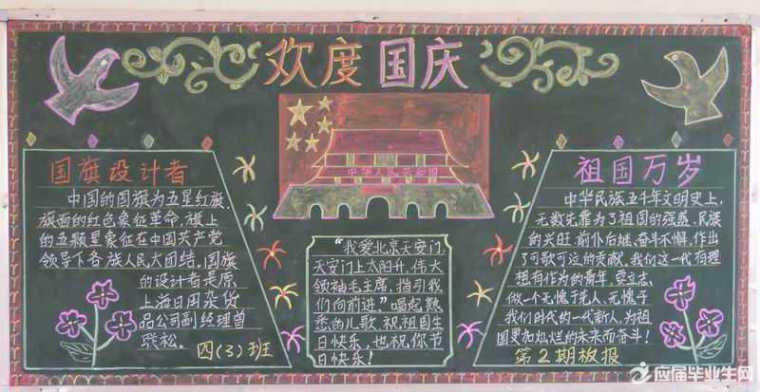 欢度国庆
中华人民共和国
国旗设计者
中国的国旗为五星红旗,
旗面的红色象征革命,旗上
的五颗星象征在中国共产党
领导下各族人民大团结,国旗
的设计者是原
上海日用杂货
品公司副经理曾
联松。
四(3)班
"我爱北京天安门
天安门上太阳升,伟大
领袖毛主席,指引我
们向前进。"唱起熟
悉的儿歌,祝祖国生
日快乐,也祝你节
日快乐!
祖国万岁
中华民族五千年文明史上,
无数先辈为了祖国的强盛、民族
的兴旺,前仆后继、奋斗不懈,作出
了可歌可泣的贡献,我们这一代有理
想有作为的青年,要立志,
做一个无愧于先人、无愧于
我们时代的一代新人,为祖
国更加灿烂的未来而奋斗!
第2期板报
应届毕业生网